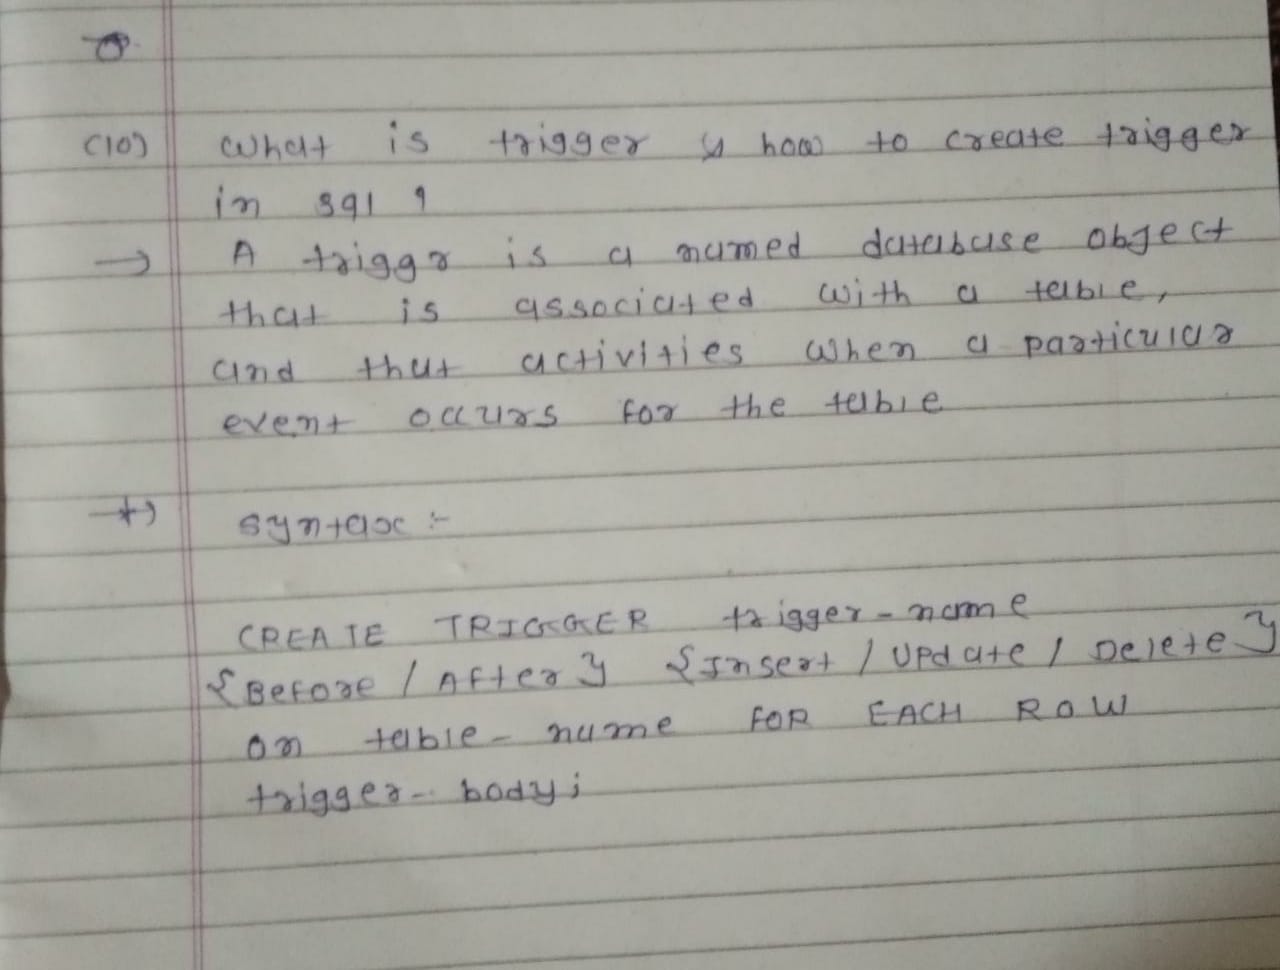 (10) What is trigger & how to create trigger
in sql ?
→ A triggr is a named database object
that is associated with a table,
and that activities when a particular
event occurs for the table
→ syntax :-
CREATE TRIGGER trigger-name
{Before / After} {Insert / Update / Delete}
on table-name FOR EACH ROW
trigger-body;